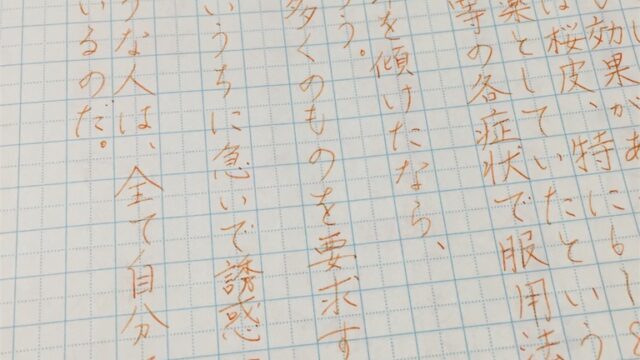 効果があ
は桜皮、特にもし
薬としていたという
等の各症状で服用法
を傾けたなら、
う。
多くのものを要求す
いうちに急いで誘惑
うな人は、全て自分
いるのだ。